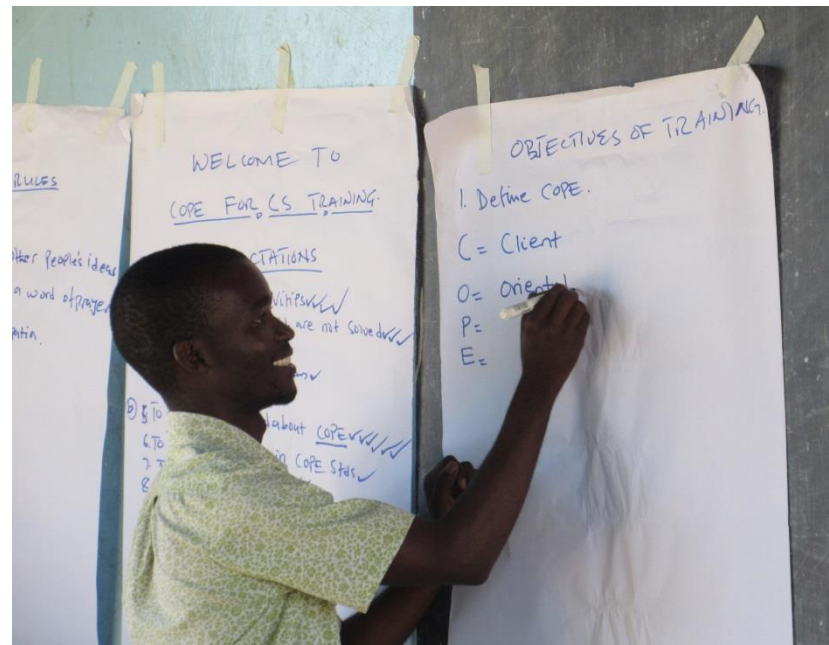 RULES
other People's ideas
a word of prayer
WELCOME TO
COPE FOR CS TRAINING.
are not solved
5 To
about COPE
6. To
in COPE Stds
7.
8
OBJECTIVES OF TRAINING.
1. Define COPE.
C = Client
O = Oriental
P =
E =